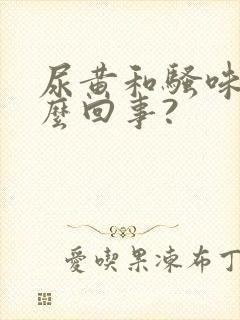 尿黄和騷味
麼回事?
愛喫果凍布丁